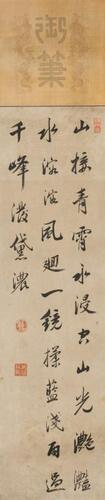 御筆
山接青霄水浸空山光灩灩
水溶溶風廻一鏡揉藍淺雨過
千峰潑黛濃